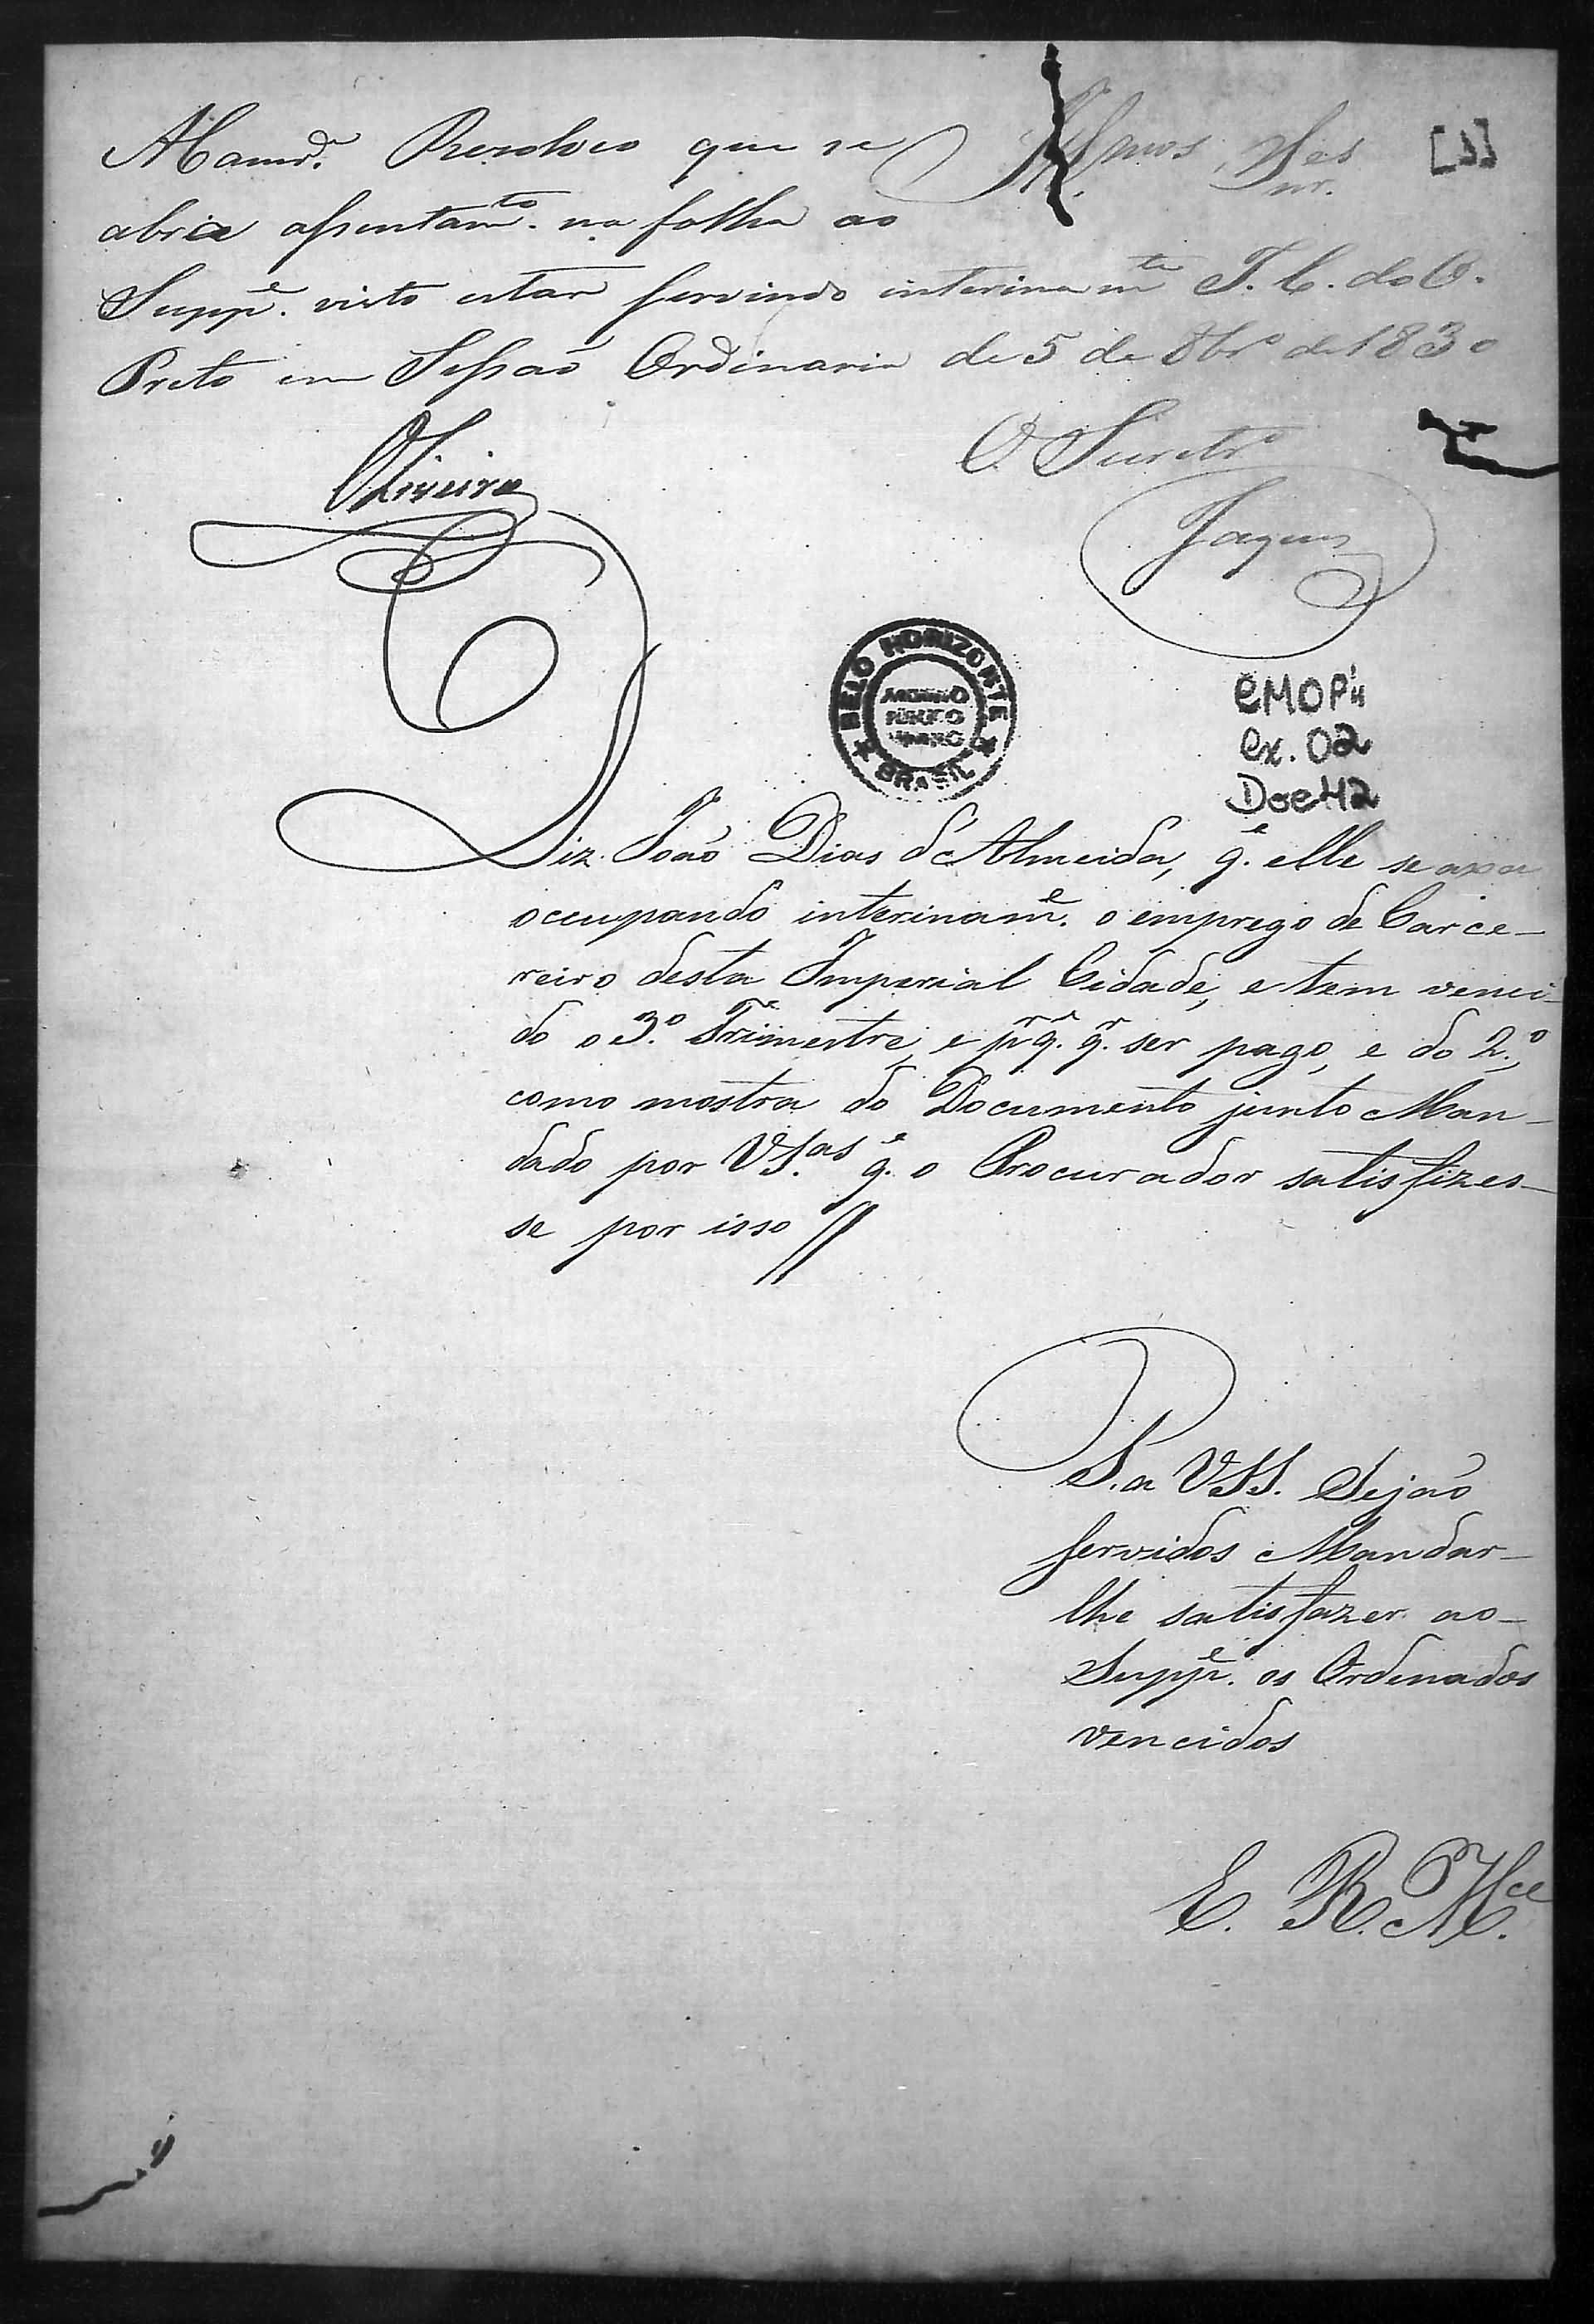 A Camrª. Rezolveo que se
Illmos. Snres
[1]
abrice assentamto. na folha ao
Suppe. visto estar servindo interinamte P. C. do O.
Preto em Sessaõ Ordinaria de 5 de 8brº de 1830
O Secretrº
Oliveira
BELO HORIZONTE
ARQUIVO
PÚBLICO
MINEIRO
BRASIL
CMOP 11
Cx. 02
Doc 42
Diz João Dias d'Almeida, qe. elle se axa
occupando interiname. o emprego de Carce-
reiro desta Imperial Cidade, e tem venci-
do o 3º. Trimestre, e pr qe. qr. ser pago, e do 2º.,
como mostra do Documento junto Man-
dado por VSas. qe. o Procurador satisfizes-
se por isso //
P. a VSS. Sejaõ
servidos Mandar-
lhe satisfazer ao-
Suppe. os Ordenados
vencidos
E. R. Mce.